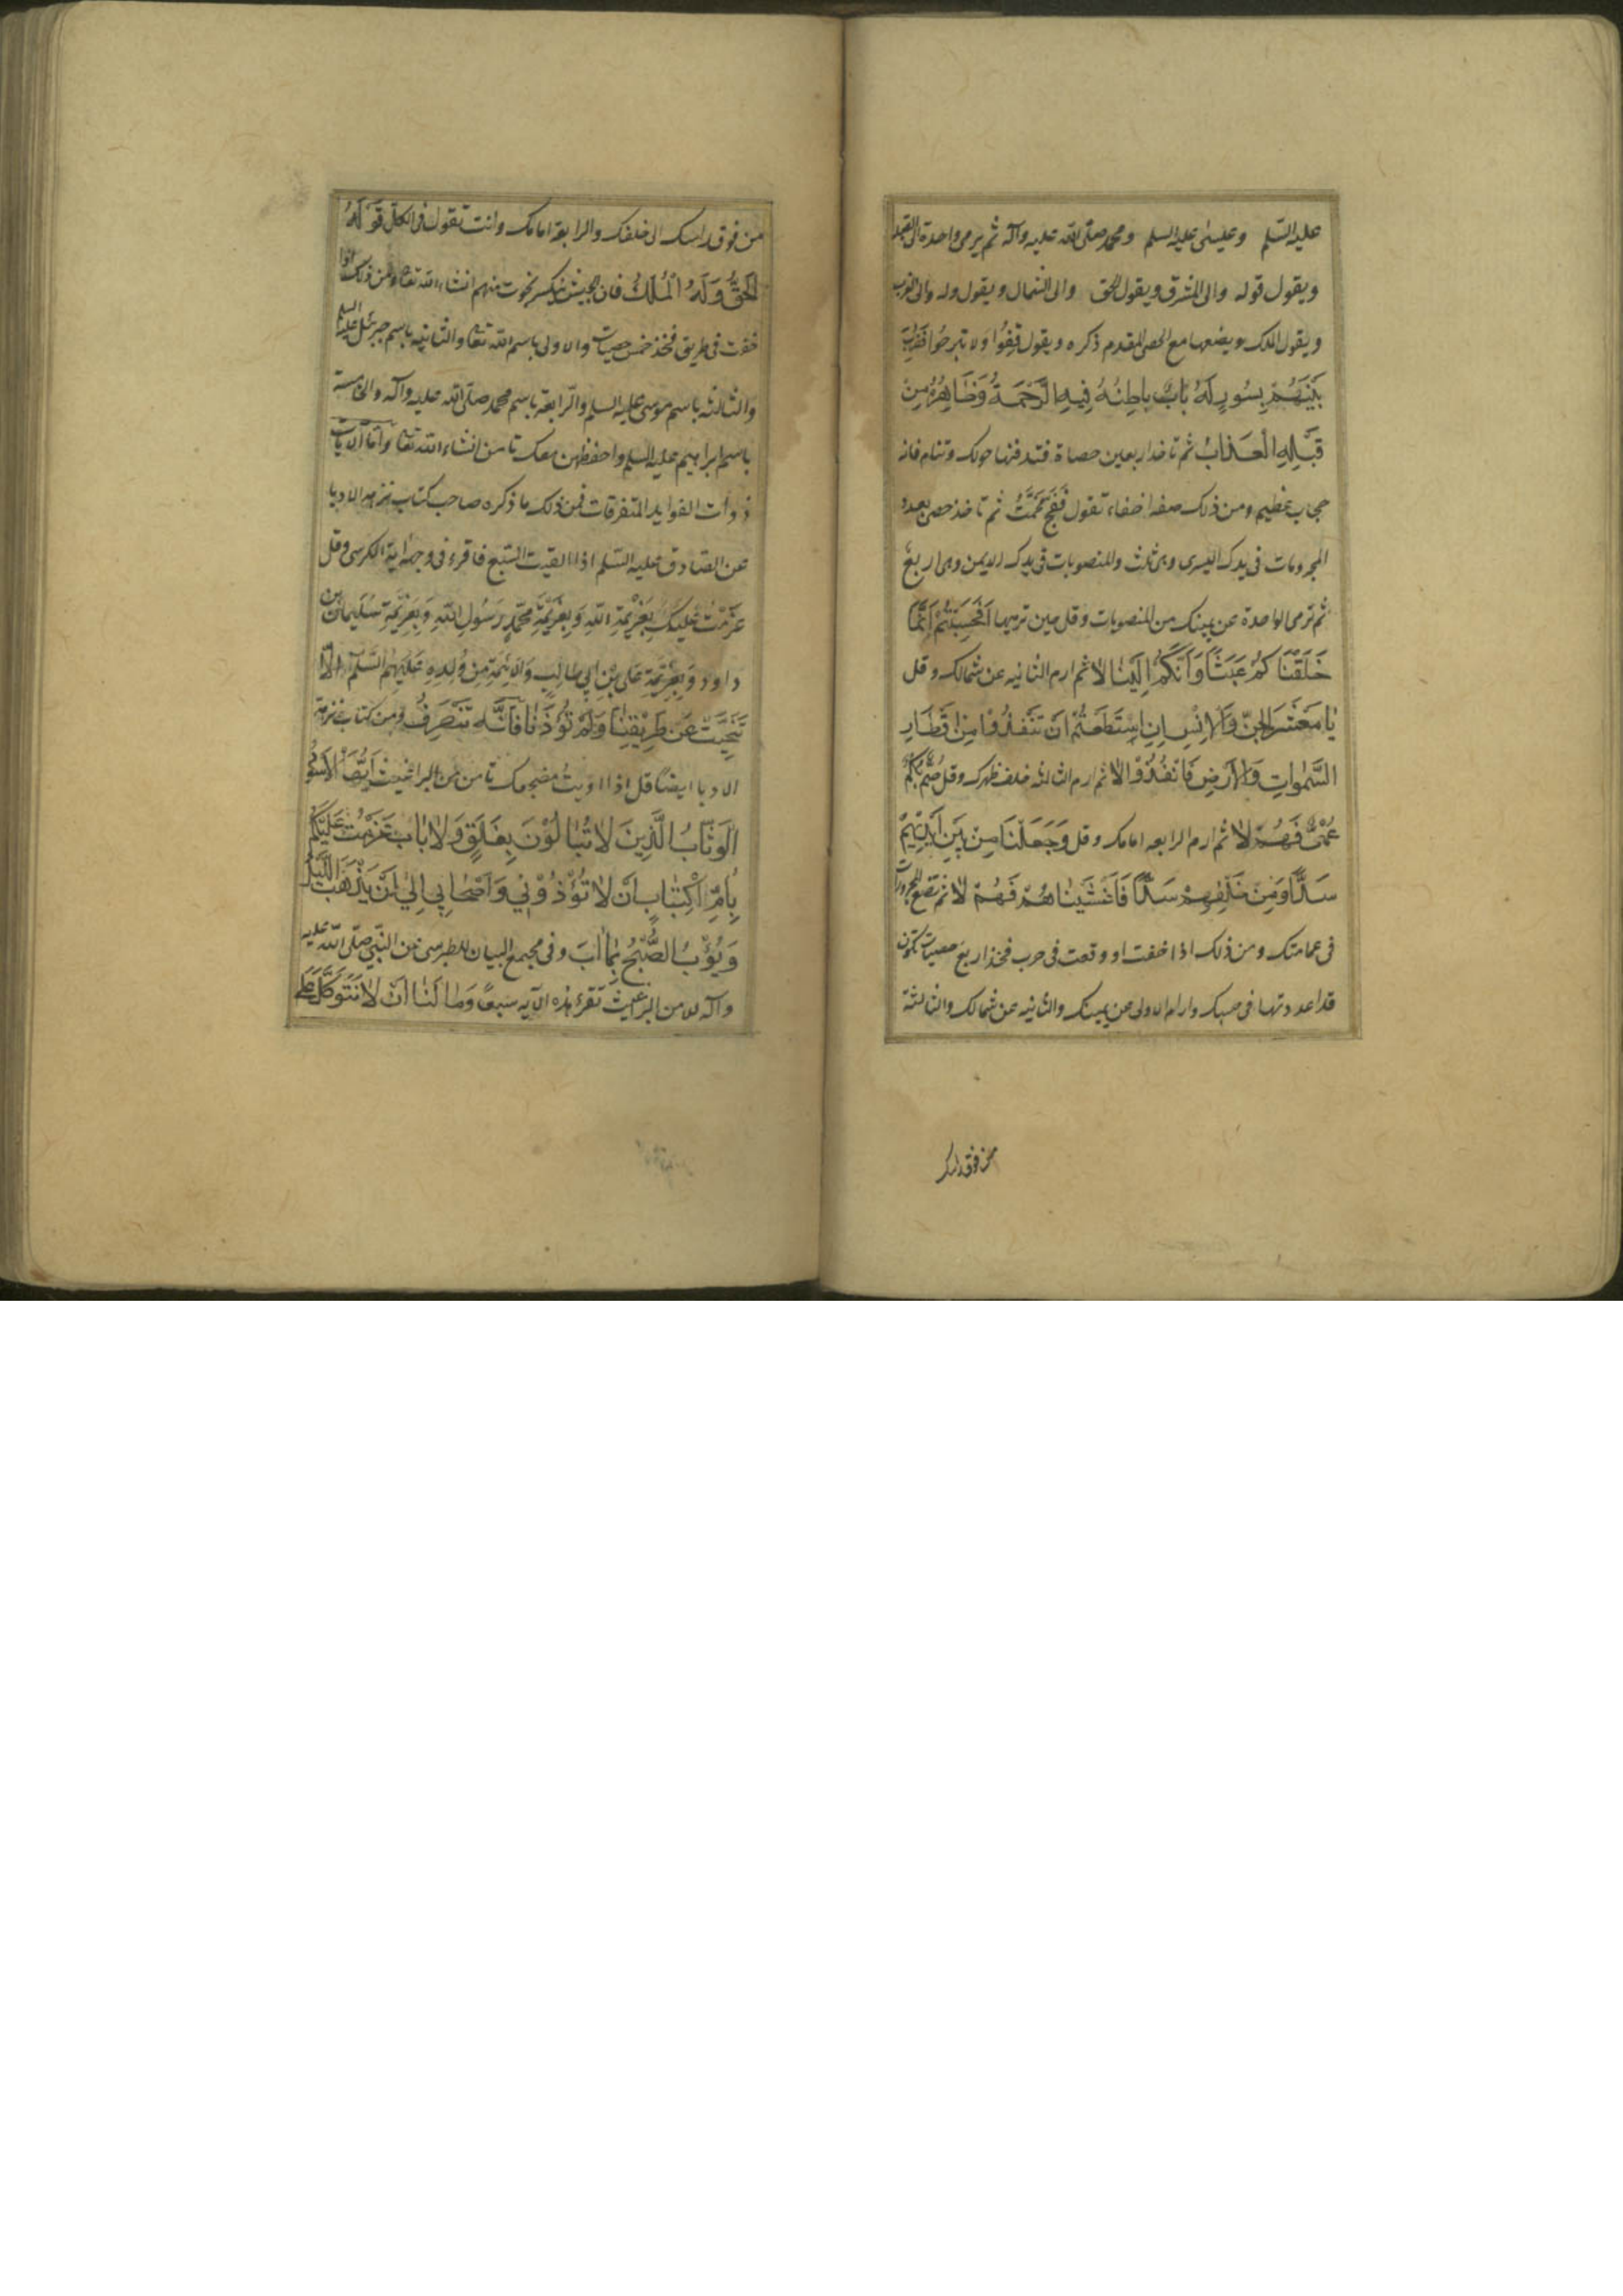 عليه السّلم وعيسى عليه السلم ومحمد صلّى الله عليه وآله ثم يرمى واحدة الى القبلة
ويقول قوله والى المشرق ويقول الحق والى الشمال ويقول وله والى الغرب
ويقول الملك ويضعها مع الحصى المقدم ذكره ويقول قِفُوا ولا تبرحوا فَضُرِبَ
بَيْنَهُمْ بِسُورٍ لَهُ بابٌ باطِنُهُ فِيهِ الرَّحْمَةُ وَظَاهِرُهُ مِنْ
قِبَلِهِ الْعَذابُ ثم تاخذ اربعين حصاة فتدفنها حولك وتنام فانه
حجاب عظيم ومن ذلك صفه اخفاء تقول فَقَج مَخْمَتْ ثم تاخذ حصى بعدد
المجزومات فى يدك اليسرى وهى ثلث والمنصوبات فى يدك الايمن وهى اربع
ثم ترمى الواحدة عن يمينك من المنصوبات وقل حين ترميها اَفَحَسِبْتُمْ اَنَّمَا
خَلَقْنَا كُمْ عَبَثًا وَاَنَّكُمْ اِلَيْنَا لا ثم ارم الثانيه عن شمالك وقل
يَا مَعْشَرَ الْجِنِّ وَالاِنْسِ اِنِ اسْتَطَعْتُمْ اَنْ تَنْفُذُوْا مِنْ اَقْطَارِ
السَّمٰواتِ وَالْاَرْضِ فَانْفُذُوْا لا ثم ارم الثالثه خلف ظهرك وقل صُمٌّ بُكْمٌ
عُمْىٌ فَهُمْ لا ثم ارم الرابعه امامك وقل وَجَعَلْنَا مِنْ بَيْنِ اَيْدِيْهِمْ
سَدًّا وَمِنْ خَلْفِهِمْ سَدًّا فَاَغْشَيْنَاهُمْ فَهُمْ لا ثم تضع المجزومات
فى عمامتك ومن ذلك اذا خفت او وقعت فى حرب فخذ اربع حصيات تكون
قد اعددتها فى جيبك وارم الاولى عن يمينك والثانيه عن شمالك والثالثة
من فوق راسك
من فوق راسك الى خلفك والرابعة امامك وانت تقول فى الكل قَوْلُهُ
الحَقُّ وَلَهُ الْمُلْكُ فان الجيش ينكسر ونجوت منهم انشاء الله تعا ومن ذلك اذا
خفت فى طريق فخذ خمس حصيات والاولى باسم الله تعا والثانيه باسم جبرئيل عليه السلم
والثالثه باسم موسى عليه السلم والرّابعة باسم محمد صلّى الله عليه وآله والخامسة
باسم ابراهيم عليه السلم واحفظهن معك تامن انشاء الله تعا وَامّا الآيات
ذوات الفوايد المتفرقات فمن ذلك ما ذكره صاحب كتاب نزهه الادبا
عن الصّادق عليه السّلم اذا لقيت السّبع فاقرء فى وجهه اية الكرسى وقل
عَزَمْتُ عَلَيْكَ بِعَزِيْمَةِ اللهِ وَبِعَزِيْمَةِ مُحَمَّدٍ رَسُولِ اللهِ وَبِعَزِيْمَةِ سُلَيمانَ بْنِ
داودَ وَبِعَزِيْمَةِ عَلِى بْنِ اَبِي طالِبٍ وَالاَئِمَّةِ مِنْ وُلْدِهِ عَلَيْهِمُ السَّلَام اِلّا
تَنَحَّيْتَ عَنْ طَرِيْقِنَا وَلَمْ تُؤْذِنَا فَاَنَّه يَنْصَرِفُ ومن كتاب نزهة
الادبا ايضًا قل اذا اويتُ مضجعك تامن من البراغيث اَيُّهَا الْاَسْوَدُ
الوَثَّابُ الَّذِينَ لاتُبَالُوْنَ بِغَلَقٍ وَلا بَابٍ عَزَمْتُ عَلَيْكُم
بِاُمِّ الْكِتَابِ اَنْ لاتُؤْذُوْنِي وَاَصْحَابِي اِلَى اَنْ يَذْهَبَ اللَّيْلُ
وَيَؤُبُ الصُّبْحُ بِمَا اَبَ وفى مجمع البيان للطبرسى عن النّبىّ صلّى الله عليه
وآله للامن من البراغيث تقرء هذه الآيه سبعًا وَمَا لَنَا اَنْ لانَتَوَكَّلَ عَلَى